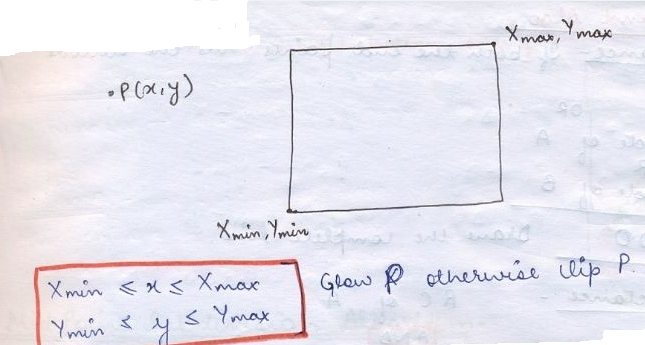 Xmax, Ymax
.P(x,y)
Xmin, Ymin
Xmin ≤ x ≤ Xmax
Ymin ≤ y ≤ Ymax
Glow P otherwise clip P.